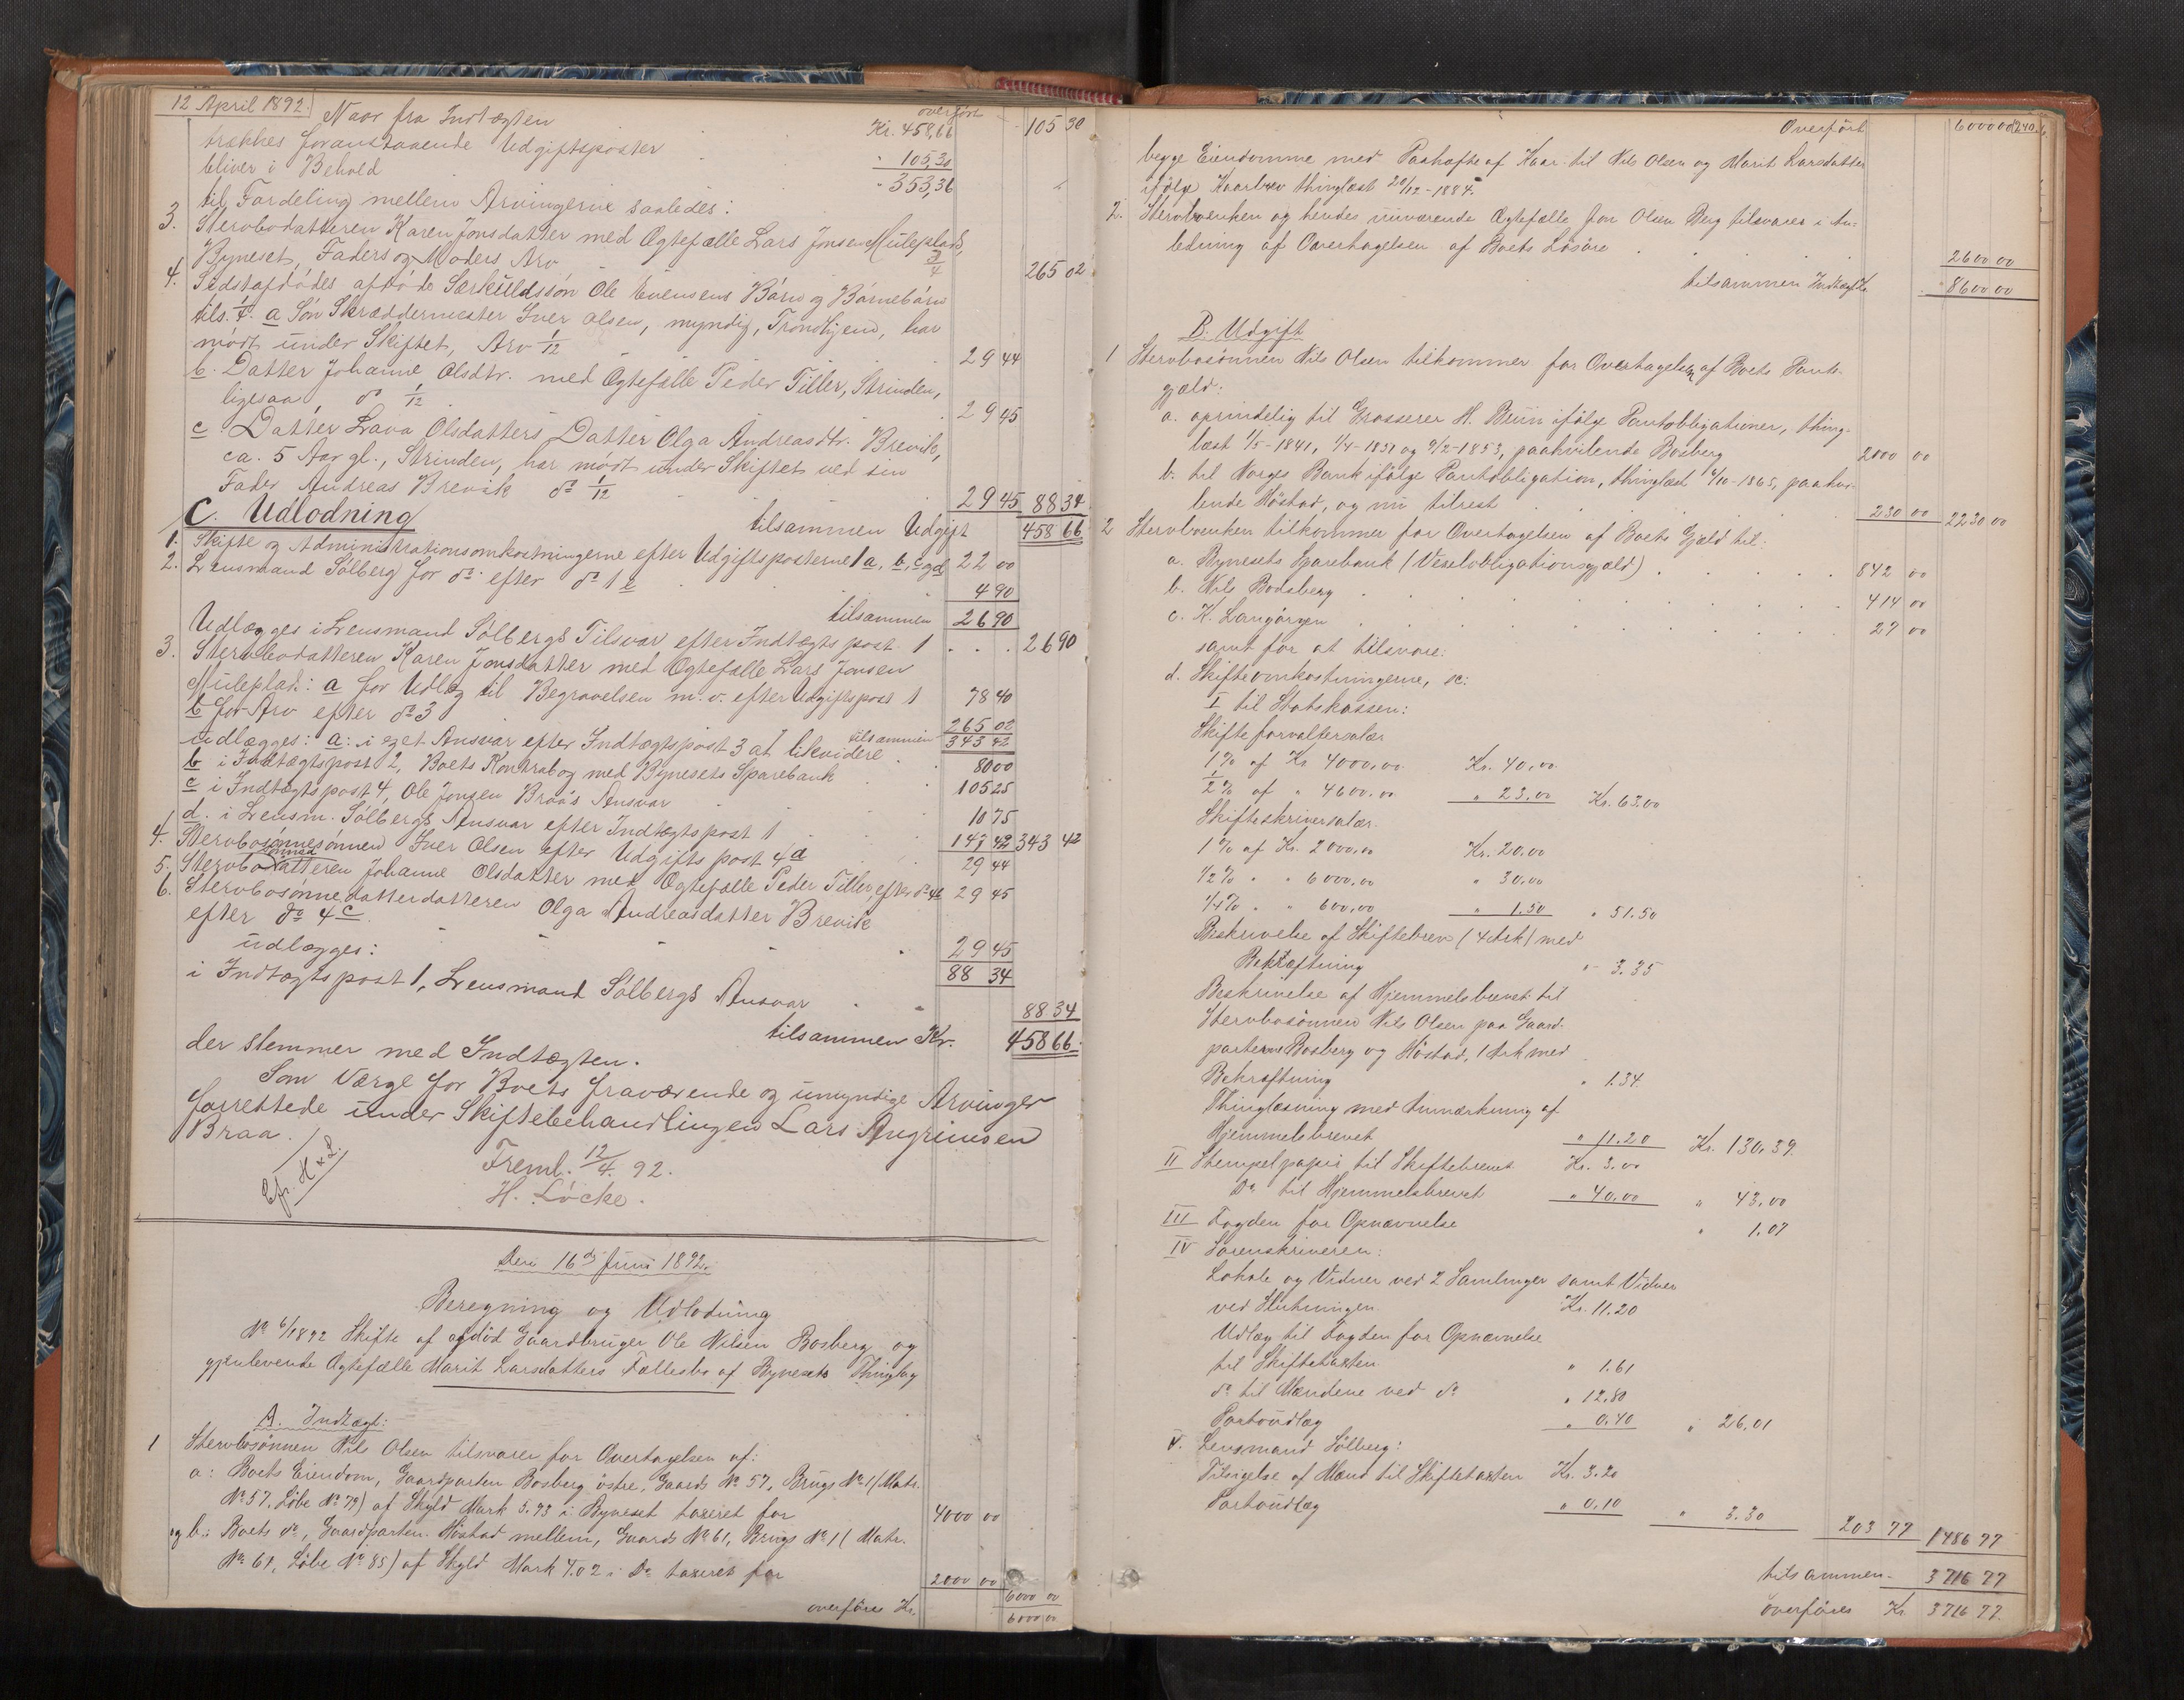 12 April 1892.
Naar fra Indtægten overført 105 30
trækkes foranstaaende Udgiftsposter Kr. 458,66
bliver i Behold " 105,30
" 353,36
til Fordeling mellem Arvingerne saaledes:
3. Stervbodatteren Karen Jonsdatter med Ægtefælle Lars Jonsen Muleplads,
Byneset, Faders og Moders Arv 3/4 265 02
4. Sidstafdødes afdøde Særkuldssøn Ole Evensens Børn og Børnebørn
tils. 1/4. a Søn Skræddermester Iver Olsen, myndig, Trondhjem, har
mødt under Skiftet, Arv 1/12 29 44
b. Datter Johanne Olsdtr. med Ægtefælle Peder Tiller, Strinden,
ligesaa, do 1/12 29 45
c. Datter Lava Olsdatters Datter Olga Andreasdtr. Brevik,
ca. 5 Aar gl., Strinden, har mødt under Skiftet ved sin
Fader Andreas Brevik do 1/12 29 45 88 34
tilsammen Udgift 458 66
C. Udlodning
1. Skifte og Administrationsomkostningerne efter Udgiftsposterne 1 a, b, c og d 22 00
2. Lensmand Sølberg for do efter do 1 e 4 90
tilsammen 26 90
Udlægges i Lensmand Sølbergs Tilsvar efter Indtægtspost 1 . . . 26 90
3. Stervbodatteren Karen Jonsdatter med Ægtefælle Lars Jonsen
Muleplads: a for Udlæg til Begravelsen m. v. efter Udgiftspost 1 78 40
b for Arv efter do 3 265 02
tilsammen 343 42
udlægges: a: i eget Ansvar efter Indtægtspost 3 at likvidere 80 00
b i Indtægtspost 2, Boets Kontrabog med Bynesets Sparebank 105 25
c i Indtægtspost 4, Ole Jonsen Braa's Ansvar 10 75
d. i Lensm. Sølbergs Ansvar efter Indtægtspost 1 147 42 343 42
4. Stervbosønnesønnen Iver Olsen efter Udgiftspost 4 a 29 44
5. Stervbosønnedatteren Johanne Olsdatter med Ægtefælle Peder Tiller, efter do 4 b 29 45
6. Stervbosønnedatterdatteren Olga Andreasdatter Brevik
efter do 4 c 29 45
udlægges: 88 34
i Indtægtspost 1, Lensmand Sølbergs Ansvar 88 34
tilsammen Kr. 458 66
der stemmer med Indtægten.
Som Værge for Boets fraværende og umyndige Arvinger
forrettede under Skiftebehandlingen Lars Angrimsen
Braa.
Freml. 12/4. 92.
H. Löcke.
Den 16de Juni 1892.
Beregning og Udlodning
No 6/1892 Skifte af afdød Gaardbruger Ole Nilsen Bosberg og
gjenlevende Ægtefælle Marit Larsdatters Fællesbo af Bynesets Thinglag
A. Indtægt:
1 Stervbosønnen Nils Olsen tilsvarer for Overtagelsen af:
a: Boets Eiendom, Gaardparten Bosberg östre, Gaards No 57, Brugs No 1 (Matr.
No 57, Löbe No 79) af Skyld Mark 5.93 i Byneset taxeret for 4000 00
og b: Boets do, Gaardparten Höstad mellem, Gaards No 61, Brugs No 1 (Matr.
No 61, Löbe No 85) af Skyld Mark 4.02 i Do taxeret for 2000 00 6000 00
overføres Kr. 6000 00
Overført 6000 00
begge Eiendomme med Paahefte af Kaar til Nils Olsen og Marit Larsdatter
ifölge Kaarbrev thinglæst 20/12-1884.
2. Stervboenken og hendes nuværende Ægtefælle Jon Olsen Berg tilsvarer i An-
ledning af Overtagelsen af Boets Lösöre 2600 00
tilsammen Indtægt Kr. 8600 00
B. Udgift
1 Stervbosønnen Nils Olsen tilkommer for Overtagelsen af Boets Pante-
gjæld:
a. oprindelig til Grosserer H. Buun ifölge Pantobligationer, thing-
læst 1/5-1841, 1/4-1851 og 9/2-1853, paahvilende Bosberg 2000 00
b. til Norges Bank ifölge Pantobligation, thinglæst 4/10-1865, paahvi-
lende Höstad, og nu tilrest 230 00 2230 00
2 Stervboenken tilkommer for Overtagelsen af Boets Gjæld til:
a. Bynesets Sparebank (Vexelobligationsgjæld) 842 00
b. Nils Bodsberg 414 00
c. K. Langörgen 27 00
samt for at tilsvare:
d. Skifteomkostningerne, sc:
I til Statskassen:
Skifteforvaltersalær
1% af Kr 4000,00 Kr. 40,00
1/2% af " 4600.00 " 23,00 Kr. 63,00
Skifteskriversalær.
1% af Kr. 2000,00 Kr. 20,00
1/2% " " 6000,00 " 30,00
1/4% " " 600,00 " 1.50 " 51.50
Beskrivelse af Skiftebrev (4 Ark) med
Bekræftning " 3.35
Beskrivelse af Hjemmelsbrevet til
Stervbosønnen Nils Olsen paa Gaard-
parterne Bosberg og Höstad, 1 Ark med
Bekræftning " 1.34
Thinglæsning med Anmærkning af
Hjemmelsbrevet " 11.20 Kr. 130.39.
II Stempelpapir til Skiftebrevet Kr. 3.00
Do til Hjemmelsbrevet " 40,00 " 43,00
III Fogden for Opnævnelse " 1.07
IV Sorenskriveren:
Lokale og Vidner ved 2 Samlinger samt Vidner
ved Slutningen Kr. 11.20
Udlæg til Fogden for Opnævnelse
til Skiftetaxten " 1.61
do til Mændene ved do " 12.80
Portoudlæg " 0.40 " 26,01
V. Lensmand Sölberg:
Tilsigelse af Mænd til Skiftetaxten Kr. 3.20
Portoudlæg " 0.10 " 3.30 203 77 1486 77
tilsammen 3716 77
overføres Kr. 3716 77.